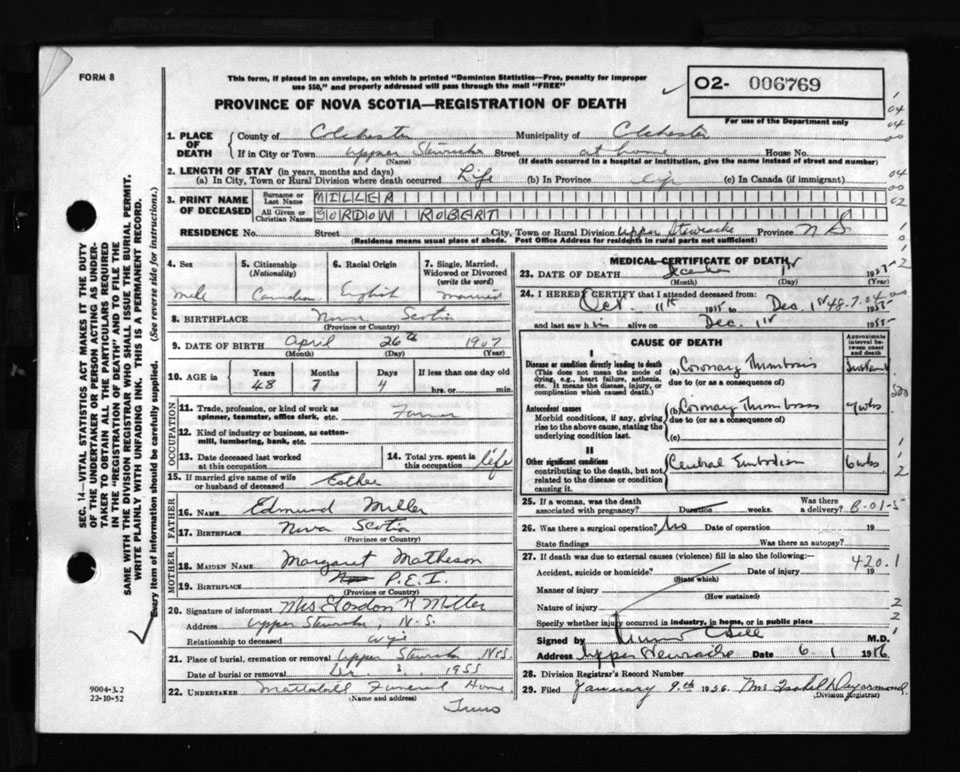 FORM 8
This form, if placed in an envelope, on which is printed "Dominion Statistics—Free, penalty for improper
use $50," and properly addressed will pass through the mail "FREE"
02- 006769
For use of the Department only
PROVINCE OF NOVA SCOTIA—REGISTRATION OF DEATH
1. PLACE OF DEATH
County of Colchester Municipality of Colchester
If in City or Town Upper Stewiacke Street at home House No.
(Name) (If death occurred in a hospital or institution, give the name instead of street and number)
2. LENGTH OF STAY (in years, months and days)
(a) In City, Town or Rural Division where death occurred Life (b) In Province Life (c) In Canada (if immigrant)
3. PRINT NAME OF DECEASED
Surname or Last Name MILLER
All Given or Christian Names GORDON ROBERT
RESIDENCE No. Street City, Town or Rural Division Upper Stewiacke Province N S.
(Residence means usual place of abode. Post Office Address for residents in rural parts not sufficient)
4. Sex Male
5. Citizenship (Nationality) Canadian
6. Racial Origin English
7. Single, Married, Widowed or Divorced (write the word) married
8. BIRTHPLACE Nova Scotia
(Province or Country)
9. DATE OF BIRTH April 26th 1907
(Month) (Day) (Year)
10. AGE in Years Months Days If less than one day
48 7 4 hrs. or min.
OCCUPATION
11. Trade, profession, or kind of work as spinner, teamster, office clerk, etc. Farmer
12. Kind of industry or business, as cotton-mill, lumbering, bank, etc.
13. Date deceased last worked at this occupation
14. Total yrs. spent in this occupation life
15. If married give name of wife or husband of deceased Esther
FATHER
16. NAME Edmund Miller
17. BIRTHPLACE Nova Scotia
(Province or Country)
MOTHER
18. MAIDEN NAME Margaret Matheson
19. BIRTHPLACE P.E.I.
(Province or Country)
20. Signature of informant Mrs Gordon R Miller
Address Upper Stewiacke, N.S.
Relationship to deceased wife
21. Place of burial, cremation or removal Upper Stewiacke N.S.
Date of burial or removal 3 1955
22. UNDERTAKER Mattatall Funeral Home
(Name and address)
Truro
MEDICAL CERTIFICATE OF DEATH
23. DATE OF DEATH December 1st 1955
(Month) (Day)
24. I HEREBY CERTIFY that I attended deceased from:
Oct. 11th 1955 to Dec. 1st 1955
and last saw him alive on Dec. 1st 1955
CAUSE OF DEATH
Approximate interval between onset and death
I
Disease or condition directly leading to death (a) Coronary Thrombosis Instant
(This does not mean the mode of dying, e.g., heart failure, asthenia, etc. It means the disease, injury, or complication which caused death.)
due to (or as a consequence of)
Antecedent causes (b) Coronary Thrombosis 7 wks
Morbid conditions, if any, giving rise to the above cause, stating the underlying condition last.
due to (or as a consequence of)
(c)
II
Other significant conditions contributing to the death, but not related to the disease or condition causing it. Cerebral Embolism 6 wks
25. If a woman, was the death associated with pregnancy? Duration weeks. Was there a delivery?
B-01-5
26. Was there a surgical operation? No Date of operation 19
State findings Was there an autopsy?
27. If death was due to external causes (violence) fill in also the following:—
420.1
Accident, suicide or homicide? Date of injury 19
(State which)
Manner of injury
(How sustained)
Nature of injury
Specify whether injury occurred in industry, in home, or in public place
Signed by M.D.
Address Upper Stewiacke Date 6. 1 1956
28. Division Registrar's Record Number
29. Filed January 9th 1956. Mrs Isabel Deyarmond
(Division Registrar)
SEC. 14—VITAL STATISTICS ACT MAKES IT THE DUTY
OF THE UNDERTAKER OR PERSON ACTING AS UNDER-
TAKER TO OBTAIN ALL THE PARTICULARS REQUIRED
IN THE "REGISTRATION OF DEATH" AND TO FILE THE
SAME WITH THE DIVISION REGISTRAR WHO SHALL ISSUE THE BURIAL PERMIT.
WRITE PLAINLY WITH UNFADING INK. THIS IS A PERMANENT RECORD.
Every item of information should be carefully supplied. (See reverse side for instructions.)
9004-3.2
22-10-52